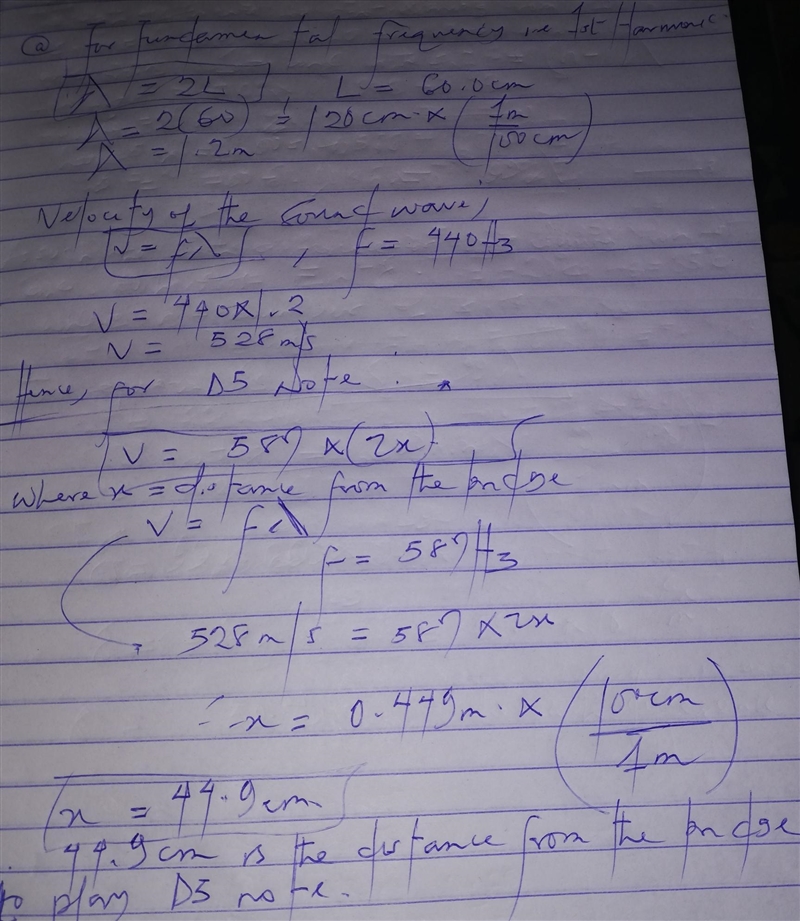 (a) For fundamental frequency ie 1st Harmonic
λ = 2L , L = 60.0cm
λ = 2(60) = 120cm × (1m/100cm)
λ = 1.2m
Velocity of the sound wave;
v = fλ , f = 440Hz
V = 440×1.2
V = 528m/s
Hence, for D5 Note.
V = 587 × (2x)
where x = distance from the bridge
V = fλ
f = 587Hz
528m/s = 587 × 2x
∴ x = 0.449m × (100cm/1m)
x = 44.9cm
44.9cm is the distance from the bridge
to play D5 note.